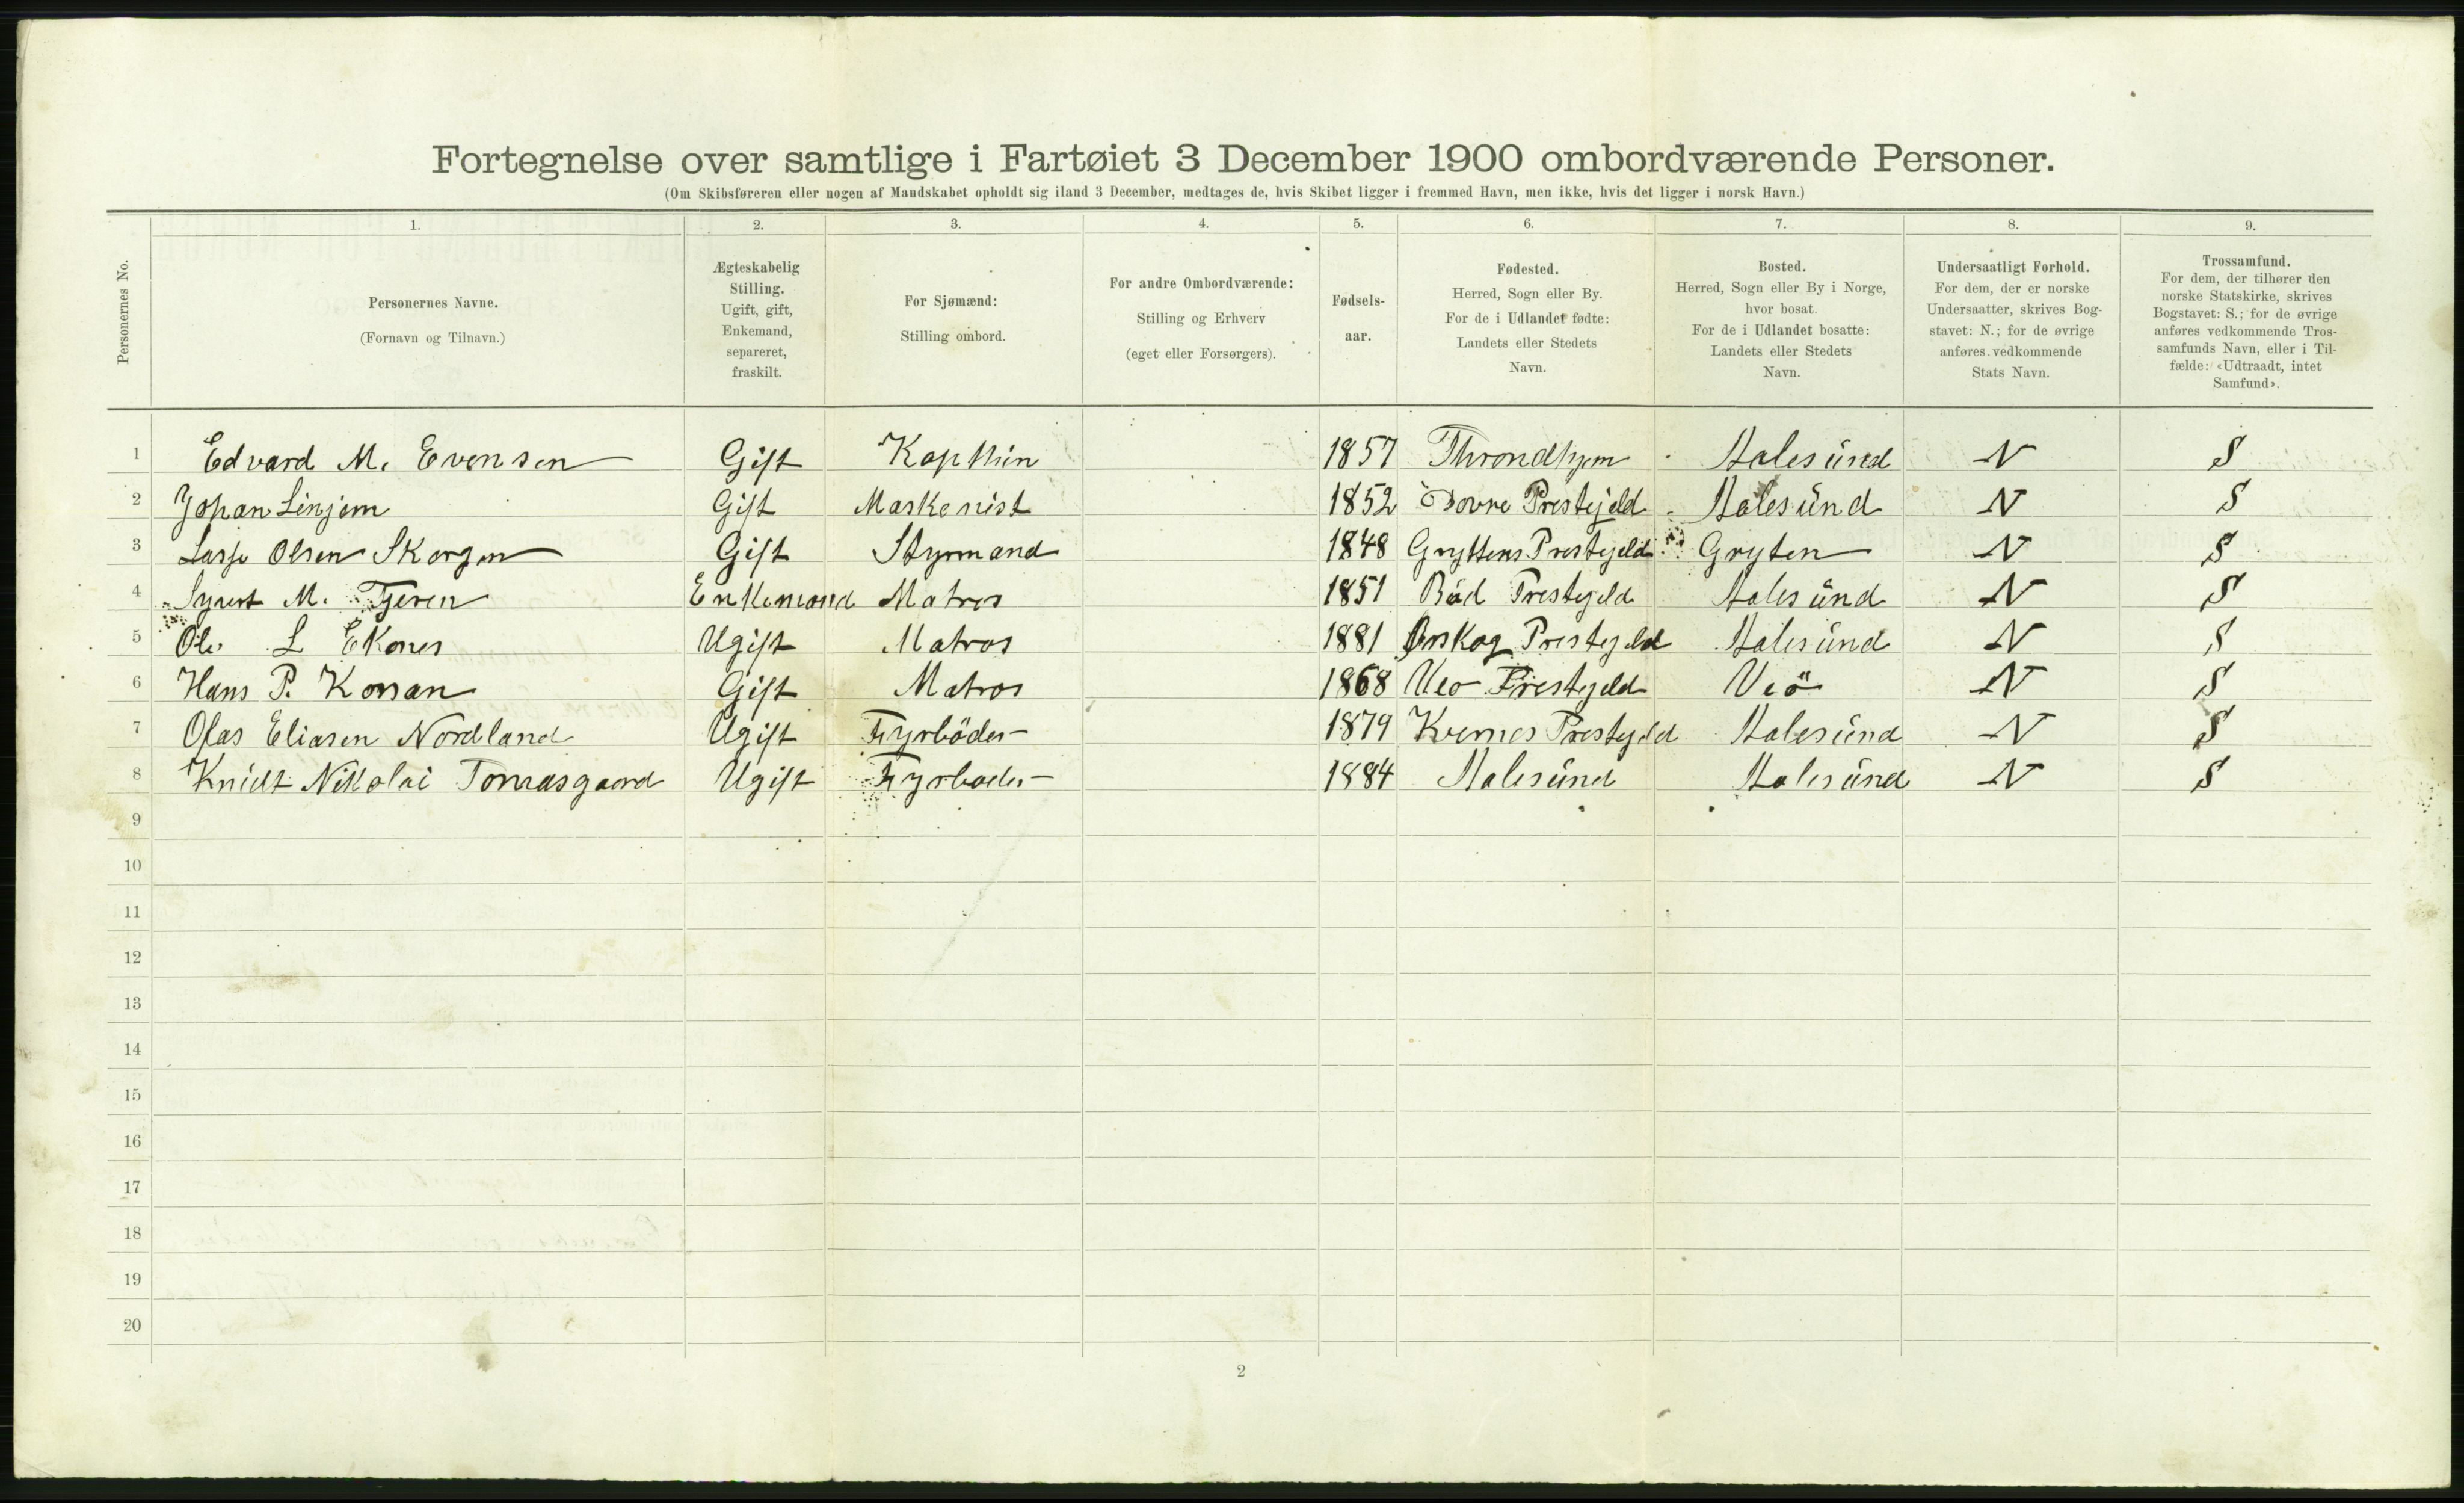 Fortegnelse over samtlige i Fartøiet 3 December 1900 ombordværende Personer.
(Om Skibsføreren eller nogen af Mandskabet opholdt sig iland 3 December, medtages de, hvis Skibet ligger i fremmed Havn, men ikke, hvis det ligger i norsk Havn.)
Personernes No.
1. 2. 3. 4. 5. 6. 7. 8. 9.
Personernes Navne.
(Fornavn og Tilnavn.)
Ægteskabelig
Stilling.
Ugift, gift,
Enkemand,
separeret,
fraskilt.
For Sjømænd:
Stilling ombord.
For andre Ombordværende:
Stilling og Erhverv
(eget eller Forsørgers).
Fødsels-
aar.
Fødested.
Herred, Sogn eller By.
For de i Udlandet fødte:
Landets eller Stedets
Navn.
Bosted.
Herred, Sogn eller By i Norge,
hvor bosat.
For de i Udlandet bosatte:
Landets eller Stedets
Navn.
Undersaatligt Forhold.
For dem, der er norske
Undersaatter, skrives Bog-
stavet: N.; for de øvrige
anføres vedkommende
Stats Navn.
Trossamfund.
For dem, der tilhører den
norske Statskirke, skrives
Bogstavet: S.; for de øvrige
anføres vedkommende Tros-
samfunds Navn, eller i Til-
fælde: «Udtraadt, intet
Samfund».
1 Edvard M. Evensen Gift 1857 Throndhjem Aalesünd N S
2 Johan Linjem Gift Maskenist 1852 Dovre Prestejeld Aalesünd N S
3 Olsen Skorgen Gift Styrmand 1848 Gryttens Prestejeld Gryten N S
4 M. Tjeren Enkemand Matros 1851 Büd Prestejeld Aalesünd N S
5 Ole L Ekones Ugift Matros 1881 Ørskog Prestejeld Aalesünd N S
6 Hans P. Gift Matros 1868 Veø Prestejeld Veö N S
7 Olas Eliasen Nordland Ugift Fyrböder 1879 Kvernes Prestejeld Aalesünd N S
8 Knüdt Nikolai Tomasgaard Ugift Fyrboder 1884 Aalesünd Aalesünd N S
9
10
11
12
13
14
15
16
17
18
19
20
2